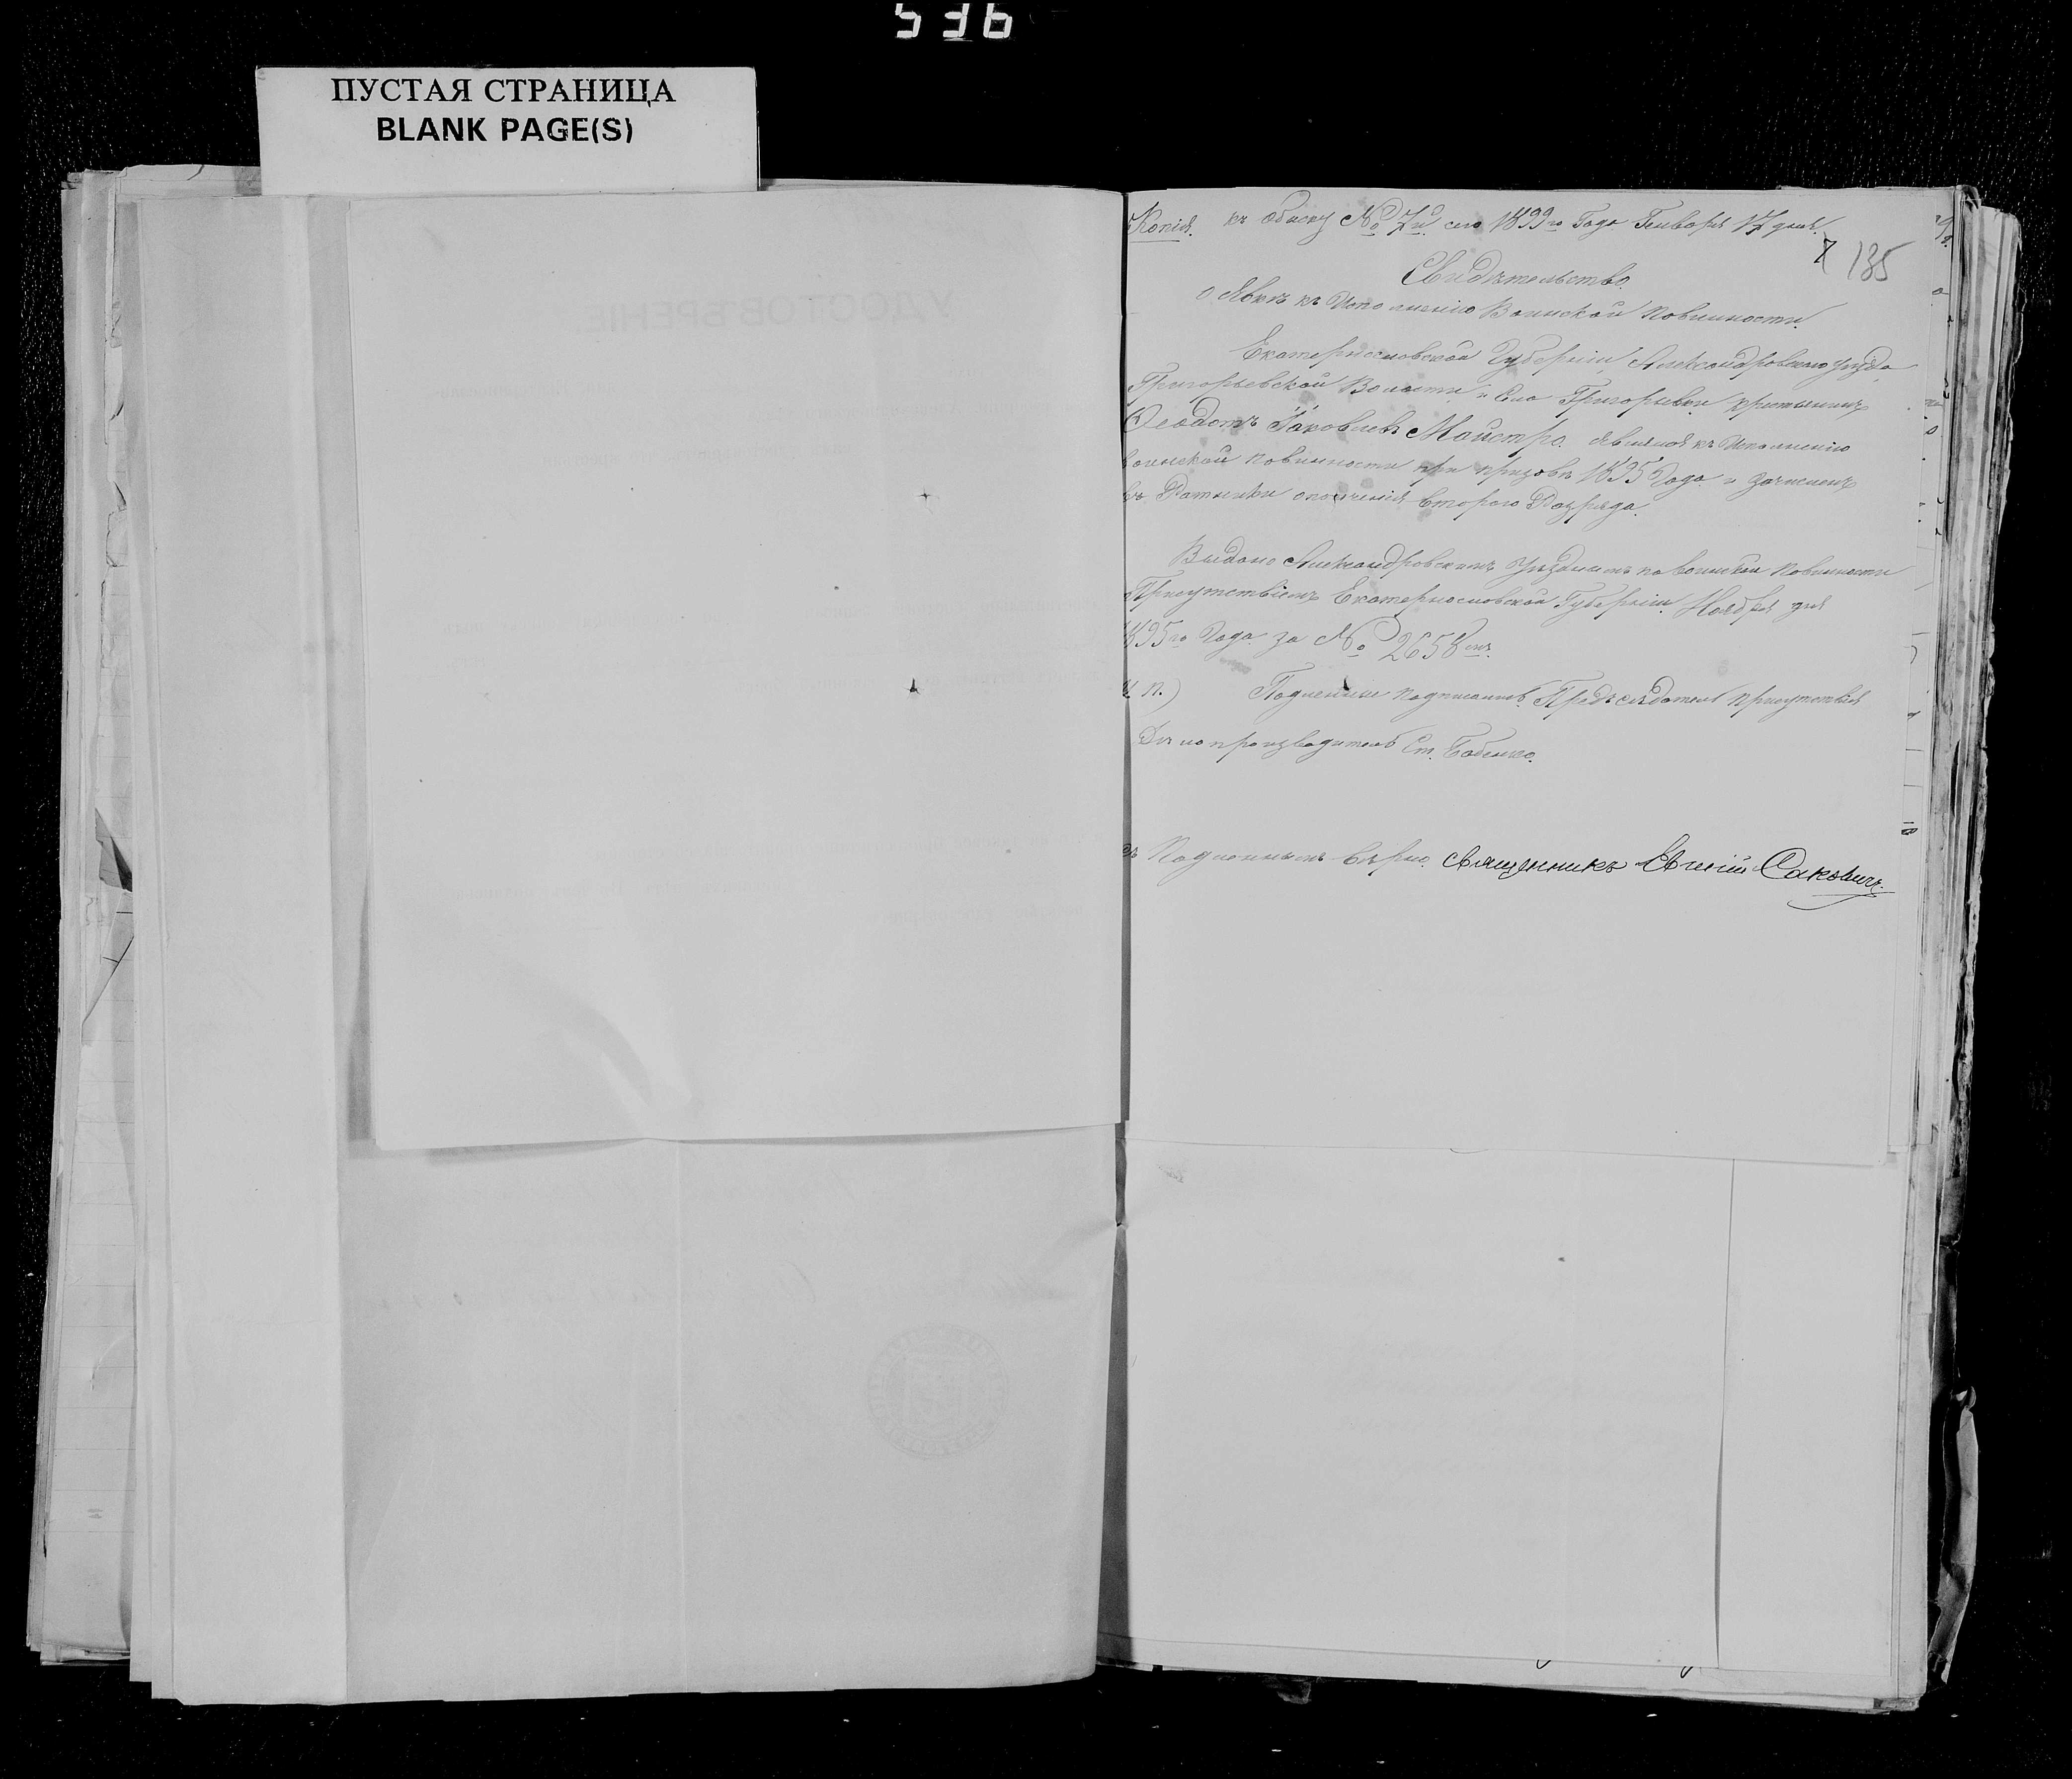 536
ПУСТАЯ СТРАНИЦА
BLANK PAGE(S)
УДОСТОВѢРЕНІЕ.
Копія. къ обыску № 7й сего 1899го Года Генваря 17 дня.
7 135
Свидѣтельство
о Явкѣ къ Исполненію Воинской Повинности.
Екатеринославской Губерніи, Александровскаго уѣзда
Григорьевской Волости и Села Григорьевки крестьянинъ
Ѳеодотъ Яковлевъ Майстро. явился къ Исполненію
воинской повинности при призывѣ 1895 Года и зачисленъ
въ Ратники ополченія второго Разряда.
Выдано Александровскимъ Уѣзднымъ по воинской повинности
Присутствіемъ Екатеринославской Губерніи. Ноября дня
1895го Года за № 2658мъ.
М. П.) Подлинные подписали: Предсѣдатель присутствія
Дѣлопроизводитель Ст. Бабенко.
Съ Подлиннымъ вѣрно. Священникъ Евгеній Саковичъ.